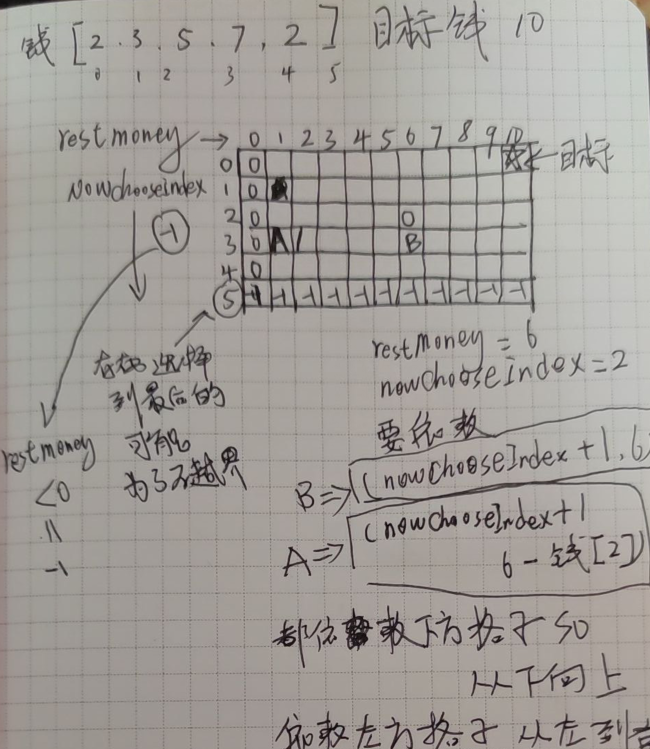 钱 [2.3.5.7,2] 目标钱 10
0 1 2 3 4 5
restmoney → 0 1 2 3 4 5 6 7 8 9 10
0 0 ← 目标
Nowchooseindex 1 0
2 0 0
-1 3 0 A B
4 0
5 -1 -1 -1 -1 -1 -1 -1 -1 -1 -1 -1
restmoney = 6
nowchooseindex = 2
选择
到最后的
可能
为了不越界
restmoney
<0
||
-1
要依赖
B => (nowchooseIndex + 1, 6)
A => (nowchooseIndex + 1
6 - 钱[2])
都依赖下方格子 so
从下向上
依赖左方格子 从左到